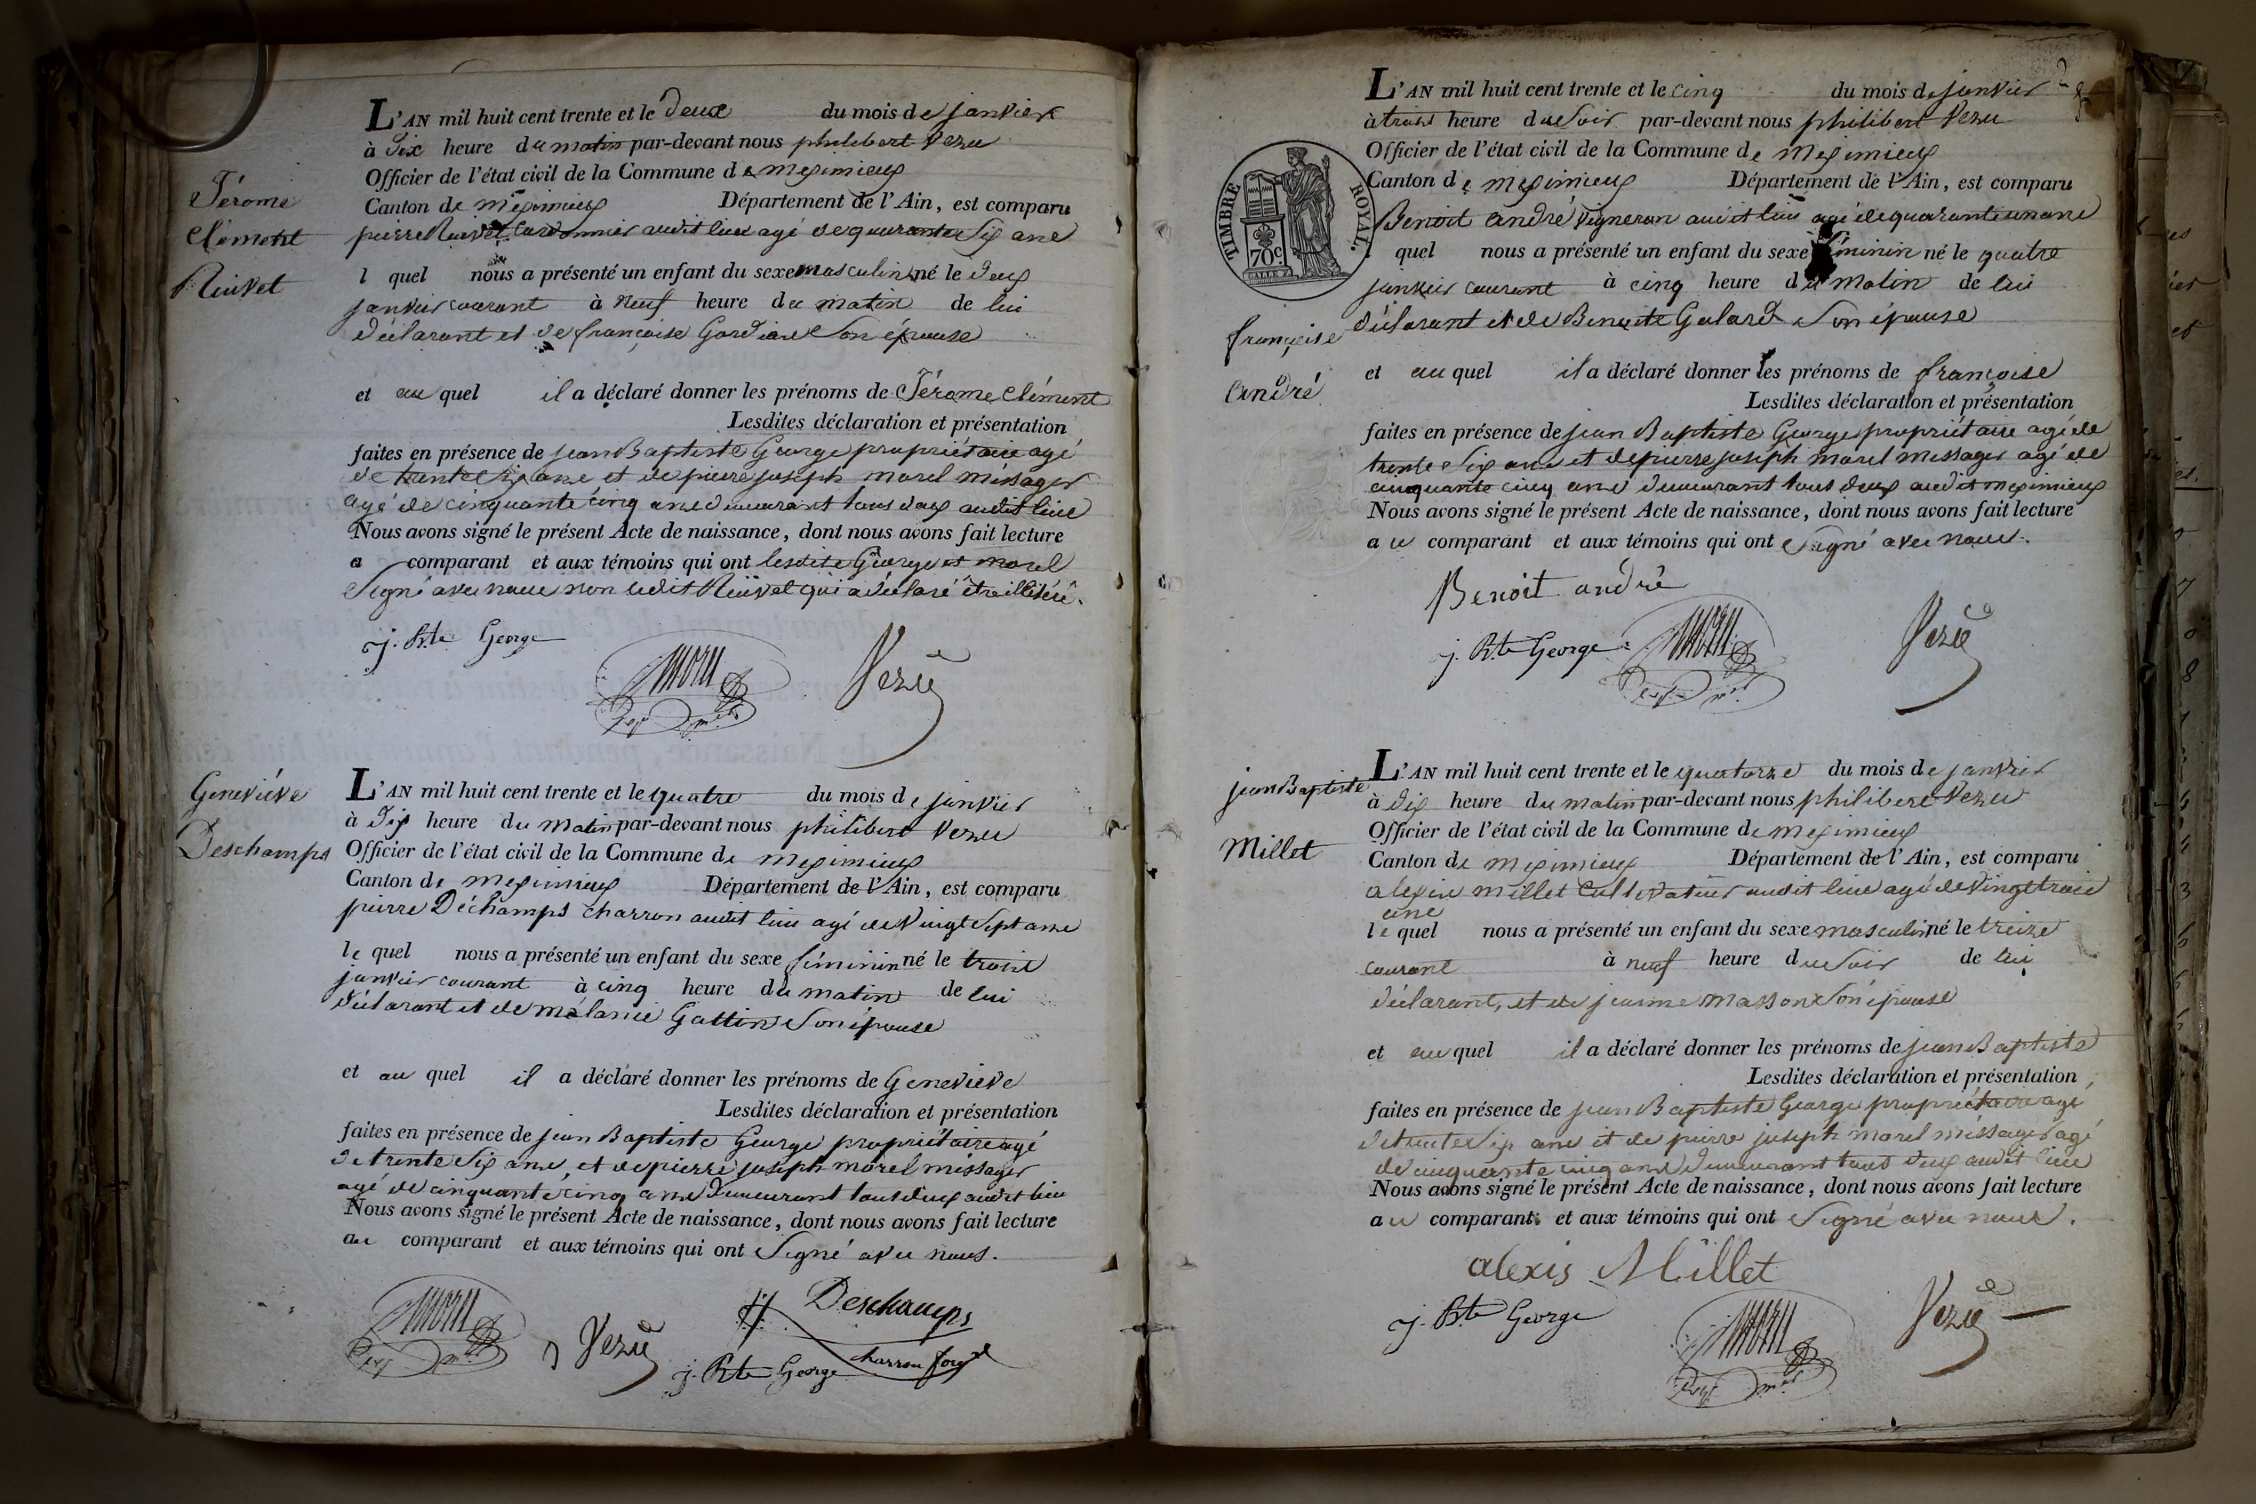 Jérome
Clément
Nuivet
L'AN mil huit cent trente et le deux du mois de janvier
à dix heure du matin par-devant nous philibert Vezu
Officier de l'état civil de la Commune de meximieux
Canton de meximieux Département de l'Ain, est comparu
pierre Nuivet Cordonnier audit lieu agé de quarante six ans
l quel nous a présenté un enfant du sexe masculin né le deux
janvier courant à neuf heure du matin de lui
déclarant et de françoise Gardiane Son épouse
et au quel il a déclaré donner les prénoms de Jérome Clément
Lesdites déclaration et présentation
faites en présence de jean Baptiste George propriétaire agé
de trente six ans et de pierre joseph morel méssager
agé de cinquante cinq ans demeurant tous deux audit lieu
Nous avons signé le présent Acte de naissance, dont nous avons fait lecture
a comparant et aux témoins qui ont lesdits George et morel
Signé avec nous non ledit Nuivet qui a déclaré être illitéré.
j. Bte George
Vezu
Geneviéve
Deschamps
L'AN mil huit cent trente et le quatre du mois de janvier
à dix heure du matin par-devant nous philibert Vezu
Officier de l'état civil de la Commune de meximieux
Canton de meximieux Département de l'Ain, est comparu
pierre Déchamps charron audit lieu agé de vingt Sept ans
le quel nous a présenté un enfant du sexe féminin né le trois
janvier courant à cinq heure du matin de lui
déclarant et de mélanie Gattin Son épouse
et au quel il a déclaré donner les prénoms de Geneviéve
Lesdites déclaration et présentation
faites en présence de jean Baptiste George propriétaire agé
de trente Six ans, et de pierre joseph morel méssager
agé de cinquante cinq ans demeurant tous deux audit lieu
Nous avons signé le présent Acte de naissance, dont nous avons fait lecture
au comparant et aux témoins qui ont Signé avec nous.
Deschamps
Vezu
j. Bte George charron
L'AN mil huit cent trente et le cinq du mois de janvier
à trois heure du Soir par-devant nous philibert Vezu
Officier de l'état civil de la Commune de meximieux
Canton de meximieux Département de l'Ain, est comparu
TIMBRE ROYAL.
70c.
Benoit andré vigneron audit lieu agé de quarante un ans
quel nous a présenté un enfant du sexe féminin né le quatre
janvier courant à cinq heure du matin de lui
déclarant et de Benoite Galard Son épouse
françoise
André
et au quel il a déclaré donner les prénoms de françoise
Lesdites déclaration et présentation
faites en présence de jean Baptiste George propriétaire agé de
trente Six ans et de pierre joseph morel méssager agé de
cinquante cinq ans demeurant tous deux audit meximieux
Nous avons signé le présent Acte de naissance, dont nous avons fait lecture
au comparant et aux témoins qui ont Signé avec nous.
Benoit andré
j. Bte George
Vezu
jean Baptiste
Millet
L'AN mil huit cent trente et le quatorze du mois de janvier
à dix heure du matin par-devant nous philibert Vezu
Officier de l'état civil de la Commune de meximieux
Canton de meximieux Département de l'Ain, est comparu
alexis millet Cultivateur audit lieu agé de vingt trois
ans
le quel nous a présenté un enfant du sexe masculin né le treize
courant à neuf heure du Soir de lui
déclarant, et de jeanne masson Son épouse
et au quel il a déclaré donner les prénoms de jean Baptiste
Lesdites déclaration et présentation
faites en présence de jean Baptiste George propriétaire agé
de trente Six ans et de pierre joseph morel méssager agé
de cinquante cinq ans demeurant tous deux audit lieu
Nous avons signé le présent Acte de naissance, dont nous avons fait lecture
au comparant et aux témoins qui ont Signé avec nous.
alexis Millet
j. Bte George
Vezu